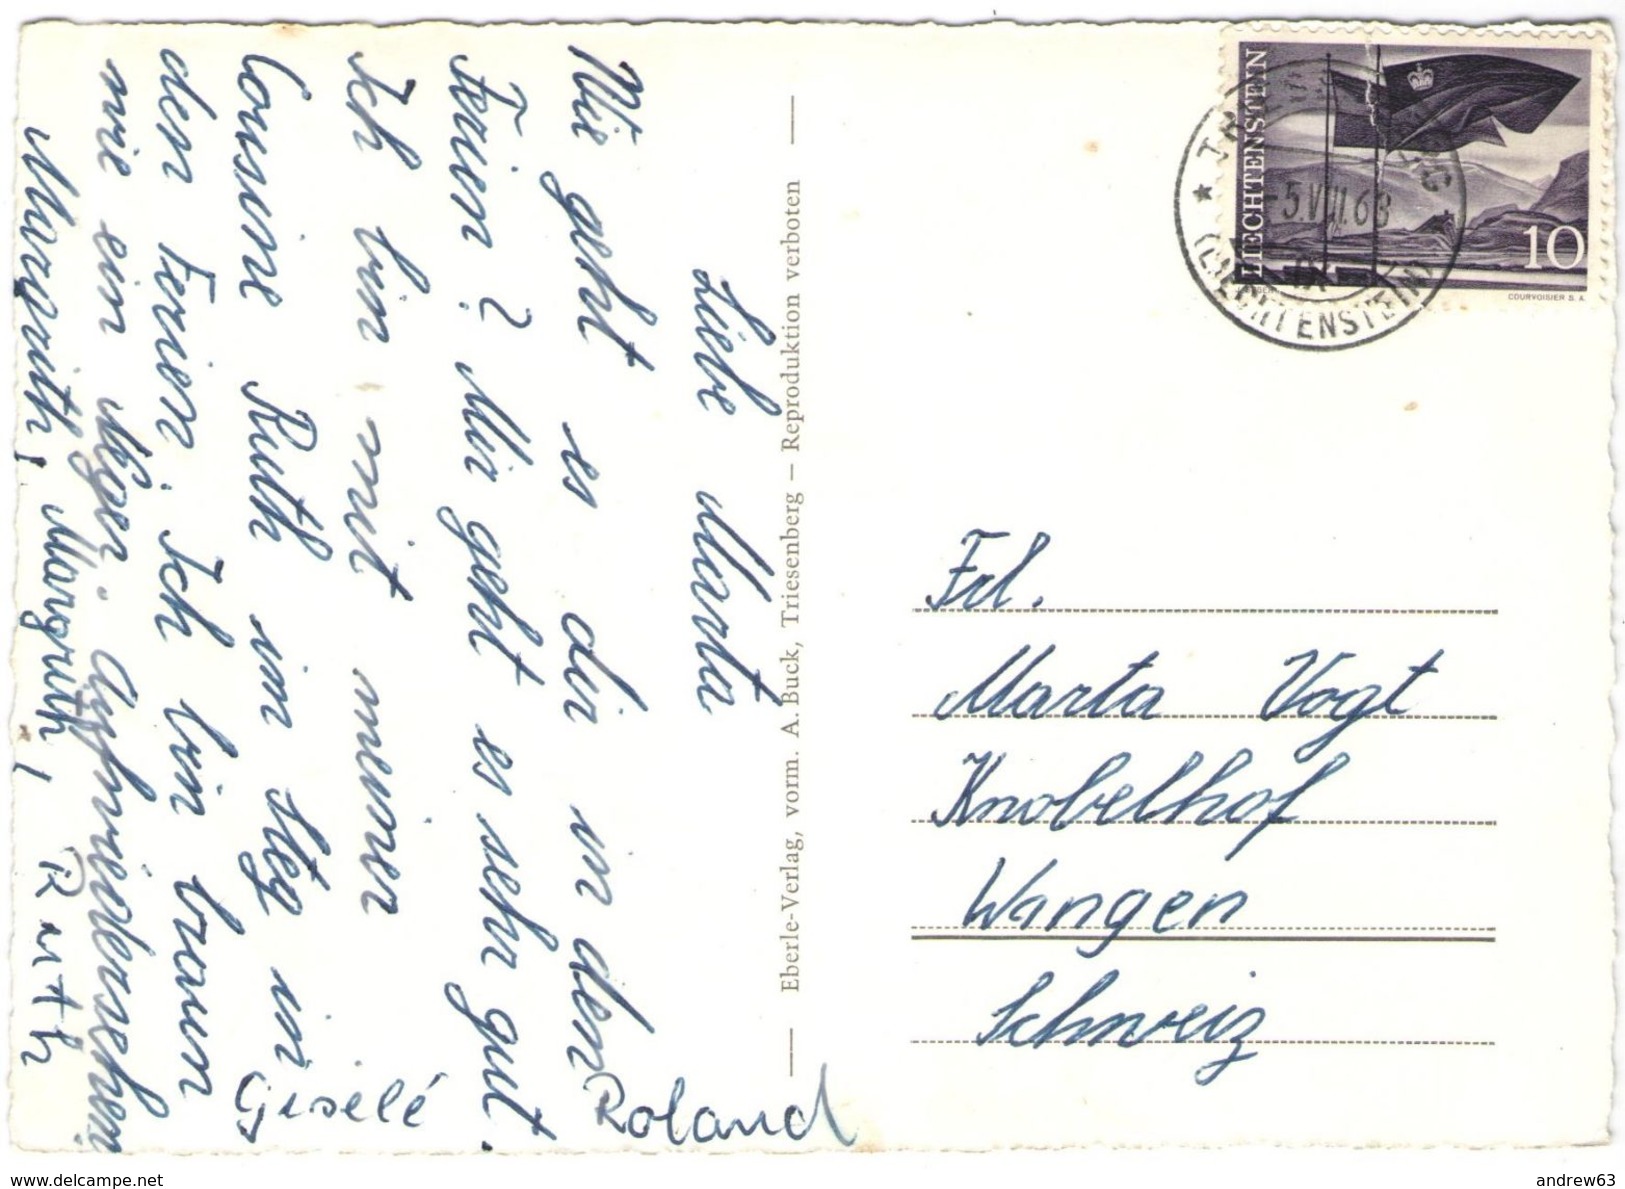 Liebe Marta
Wie geht es dir in den
Ferien? Mir geht es sehr gut.
Ich bin mit meiner
Cousine Ruth im Steg in
den Ferien. Ich bin braun
wie ein Neger. Aufwiedersehen
Margrith! Margrith! Ruth
Giselé
Roland
Eberle-Verlag, vorm. A. Buck, Triesenberg – Reproduktion verboten
LIECHTENSTEIN
10
COURVOISIER S.A.
-5.VIII.63
(LIECHTENSTEIN)
Frl.
Marta Vogt
Knobelhof
Wangen
Schweiz
www.delcampe.net
andrew63